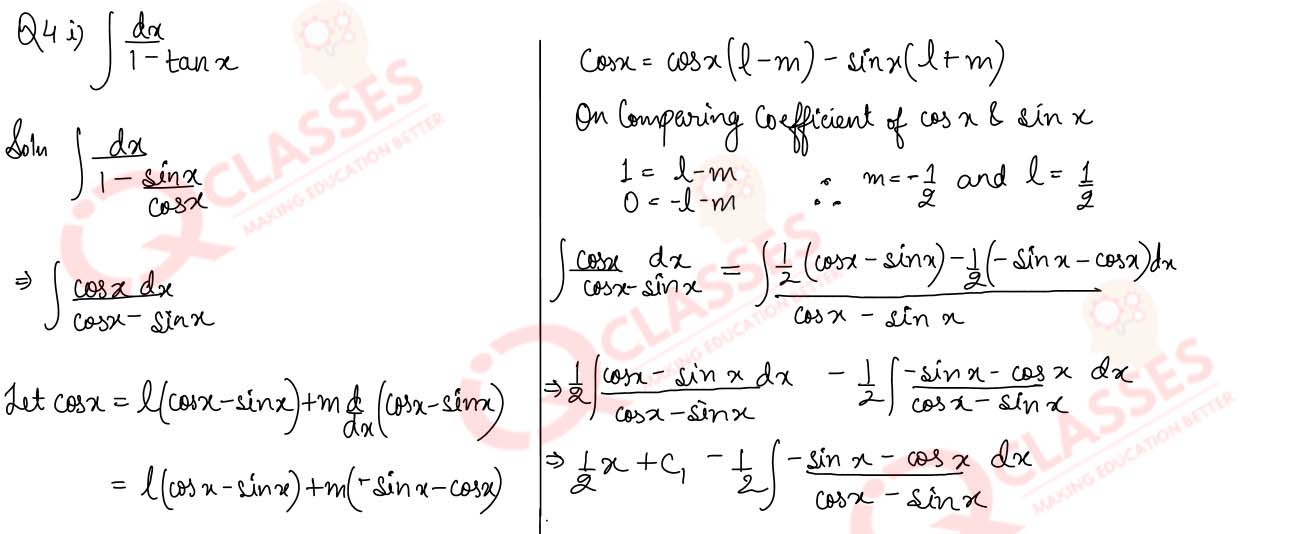 Q4 i) ∫ dx / (1 - tan x)
Soln ∫ dx / (1 - sinx/cosx)
⇒ ∫ cosx dx / (cosx - sinx)
Let cosx = l(cosx - sinx) + m d/dx (cosx - sinx)
= l(cosx - sinx) + m(-sinx - cosx)
cosx = cosx(l - m) - sinx(l + m)
On Comparing Coefficient of cosx & sinx
1 = l - m ∴ m = -1/2 and l = 1/2
0 = -l - m ∴
∫ cosx dx / (cosx - sinx) = ∫ (1/2 (cosx - sinx) - 1/2 (-sinx - cosx)dx) / (cosx - sinx)
⇒ 1/2 ∫ (cosx - sinx dx) / (cosx - sinx) - 1/2 ∫ (-sinx - cosx) dx / (cosx - sinx)
⇒ 1/2 x + C₁ - 1/2 ∫ (-sinx - cosx) dx / (cosx - sinx)
IQ CLASSES
MAKING EDUCATION BETTER
IQ CLASSES
MAKING EDUCATION BETTER
IQ CLASSES
MAKING EDUCATION BETTER